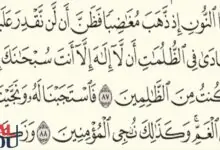 ا ٱلنُّونِ إِذ ذَّهَبَ مُغَٰضِبًا فَظَنَّ أَن لَّن نَّقْدِرَ عَلَيْ
ادَىٰ فِى ٱلظُّلُمَٰتِ أَن لَّآ إِلَٰهَ إِلَّآ أَنتَ سُبْحَٰنَكَ
كُنتُ مِنَ ٱلظَّٰلِمِينَ ٨٧ فَٱسْتَجَبْنَا لَهُۥ وَنَجَّيْنَٰ
ٱلْغَمِّ ۚ وَكَذَٰلِكَ نُۨجِى ٱلْمُؤْمِنِينَ ٨٨ وَزَ